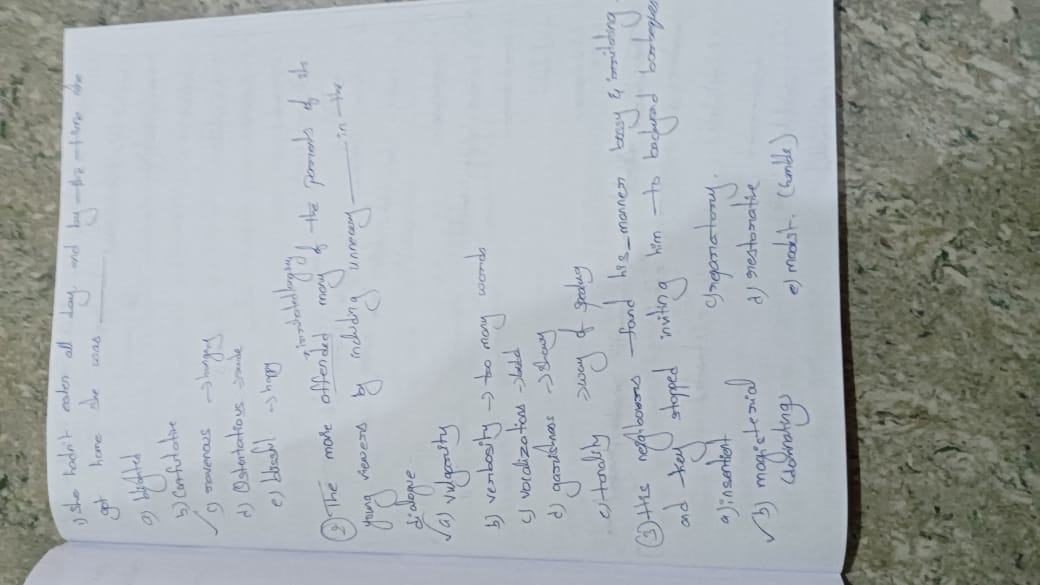 1) She hadn't eaten all day, and by the time she
got home she was ______
a) blighted
b) Confutative
✓ c) ravenous → hungry
d) Ostentatious → rude
e) blissful → happy
② The movie offended many of the parents of its
young viewers by including unnecary ______ in the
dialogue
✓ a) vulgarity
b) verbosity → too many words
c) vocalizations →
d) garishness → showy
e) tonality → way of
③ His neighbours found his manner bossy & irritating
and they stopped inviting him to backyard
a) insentient
✓ b) magisterial
c)
d) restorative
e) modest. (humble)